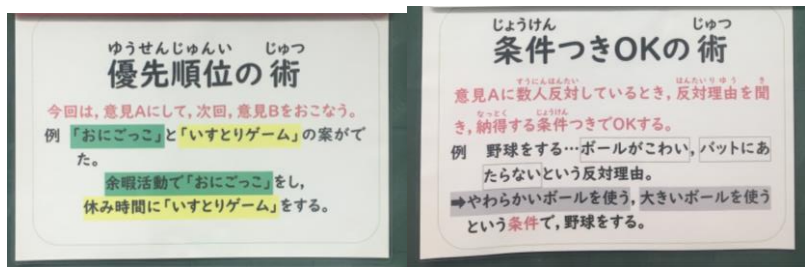 ゆうせんじゅんい じゅつ
優先順位の術
今回は,意見Aにして,次回,意見Bをおこなう。
例 「おにごっこ」と「いすとりゲーム」の案がで
た。
余暇活動で「おにごっこ」をし,
休み時間に「いすとりゲーム」をする。
じょうけん じゅつ
条件つきOKの術
すうにんはんたい はんたいりゆう き
意見Aに数人反対しているとき,反対理由を聞
なっとく じょうけん
き,納得する条件つきでOKする。
例 野球をする…ボールがこわい,バットにあ
たらないという反対理由。
➡やわらかいボールを使う,大きいボールを使う
という条件で,野球をする。